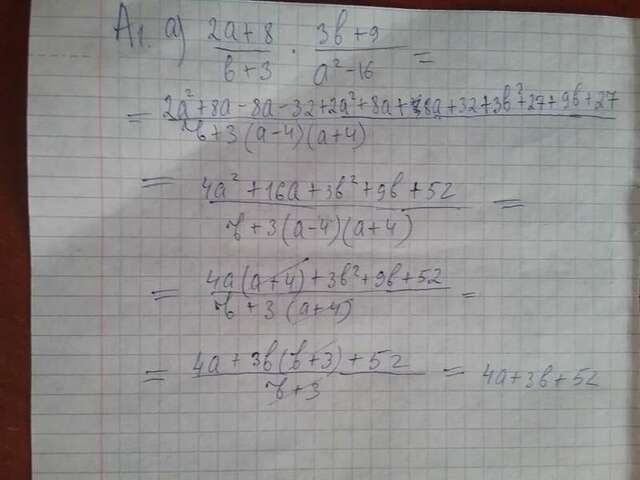 A1. a) (2a+8)/(в+3) · (3в+9)/(a²-16) =
= (2a²+8a-8a-32+2a²+8a+8a+32+3в²+27+9в+27)/(в+3(a-4)(a+4))
= (4a²+16a+3в²+9в+52)/(в+3(a-4)(a+4)) =
= (4a(a+4)+3в²+9в+52)/(в+3(a+4)) =
= (4a+3в(в+3)+52)/(в+3) = 4a+3в+52